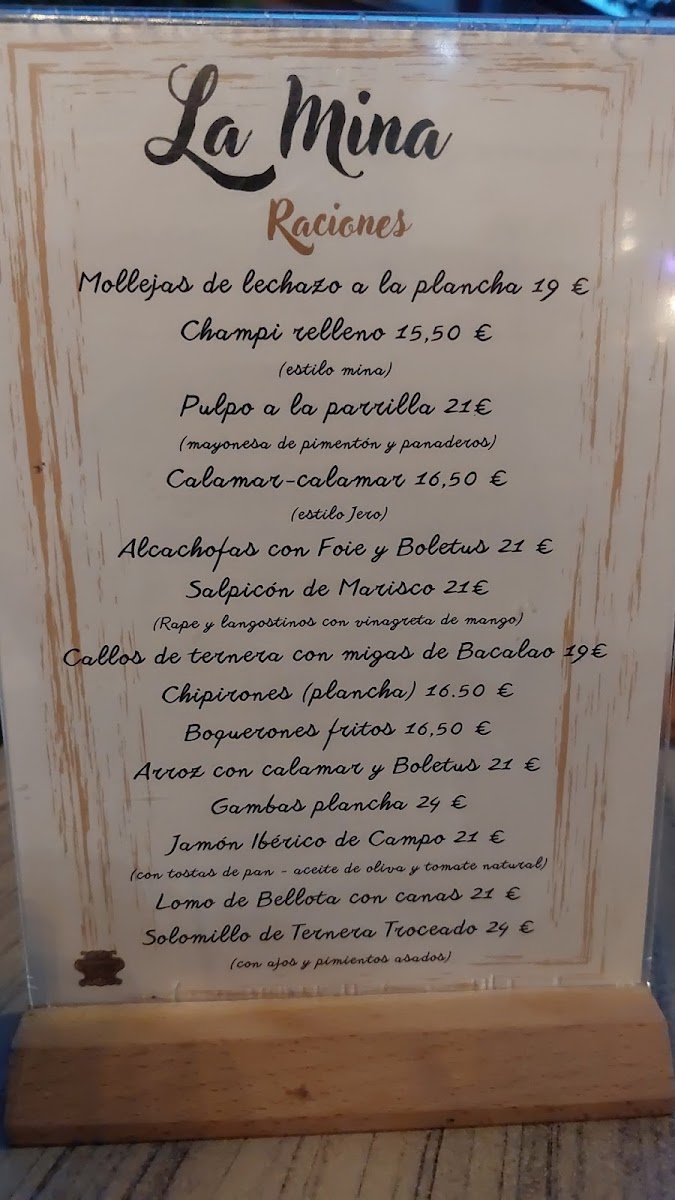 La Mina
Raciones
Mollejas de lechazo a la plancha 19 €
Champi relleno 15,50 €
(estilo mina)
Pulpo a la parrilla 21€
(mayonesa de pimentón y panaderos)
Calamar-calamar 16,50 €
(estilo Jero)
Alcachofas con Foie y Boletus 21 €
Salpicón de Marisco 21€
(Rape y langostinos con vinagreta de mango)
Callos de ternera con migas de Bacalao 19€
Chipirones (plancha) 16.50 €
Boquerones fritos 16,50 €
Arroz con calamar y Boletus 21 €
Gambas plancha 24 €
Jamón Ibérico de Campo 21 €
(con tostas de pan - aceite de oliva y tomate natural)
Lomo de Bellota con canas 21 €
Solomillo de Ternera Troceado 24 €
(con ajos y pimientos asados)